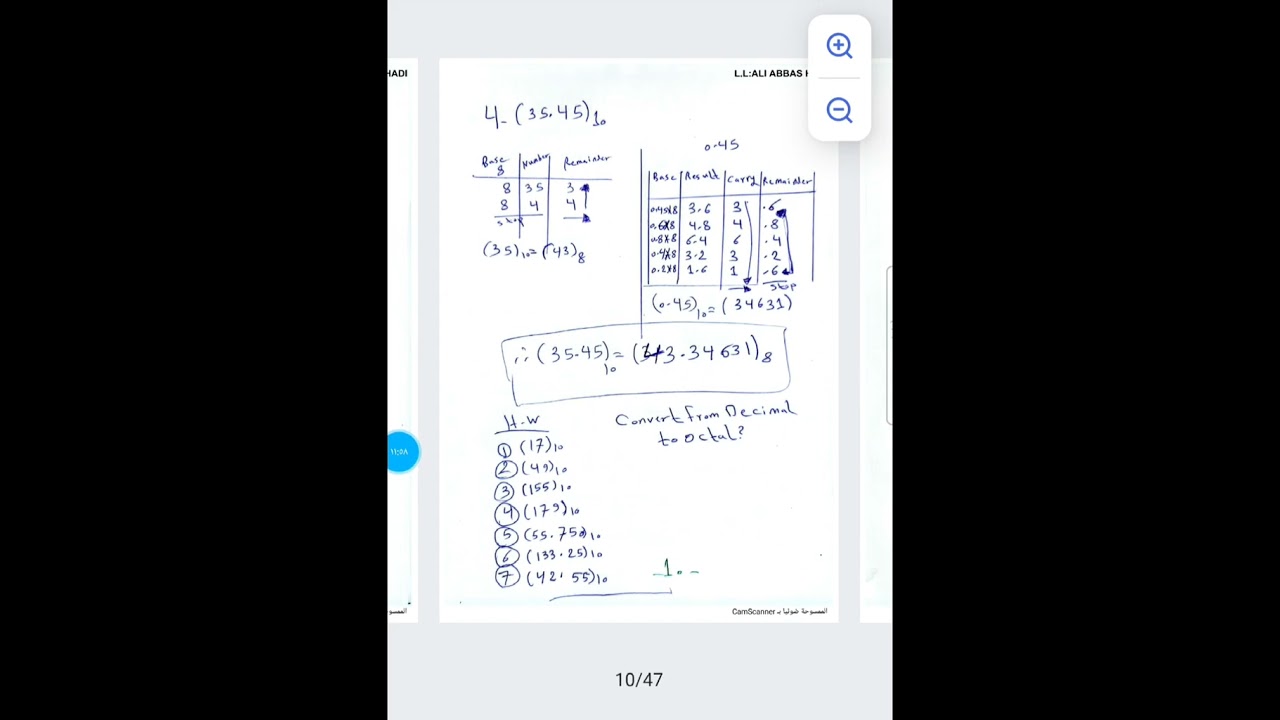 HADI
L.L:ALI ABBAS H
4- (35.45)10
Base 8 Number Remainder
8 35 3
8 4 4
stop
(35)10 = (43)8
0.45
Base Result Carry Remainder
0.45*8 3.6 3 .6
0.6*8 4.8 4 .8
0.8*8 6.4 6 .4
0.4*8 3.2 3 .2
0.2*8 1.6 1 .6
stop
(0.45)10 = (34631)
∴ (35.45)10 = (43.34631)8
H.W
Convert from Decimal
to octal?
① (17)10
② (49)10
③ (155)10
④ (179)10
⑤ (55.750)10
⑥ (133.25)10
⑦ (42.55)10
١١:٥٨
10-
الممسوحة ضوئيا بـ CamScanner
الممسو
10/47